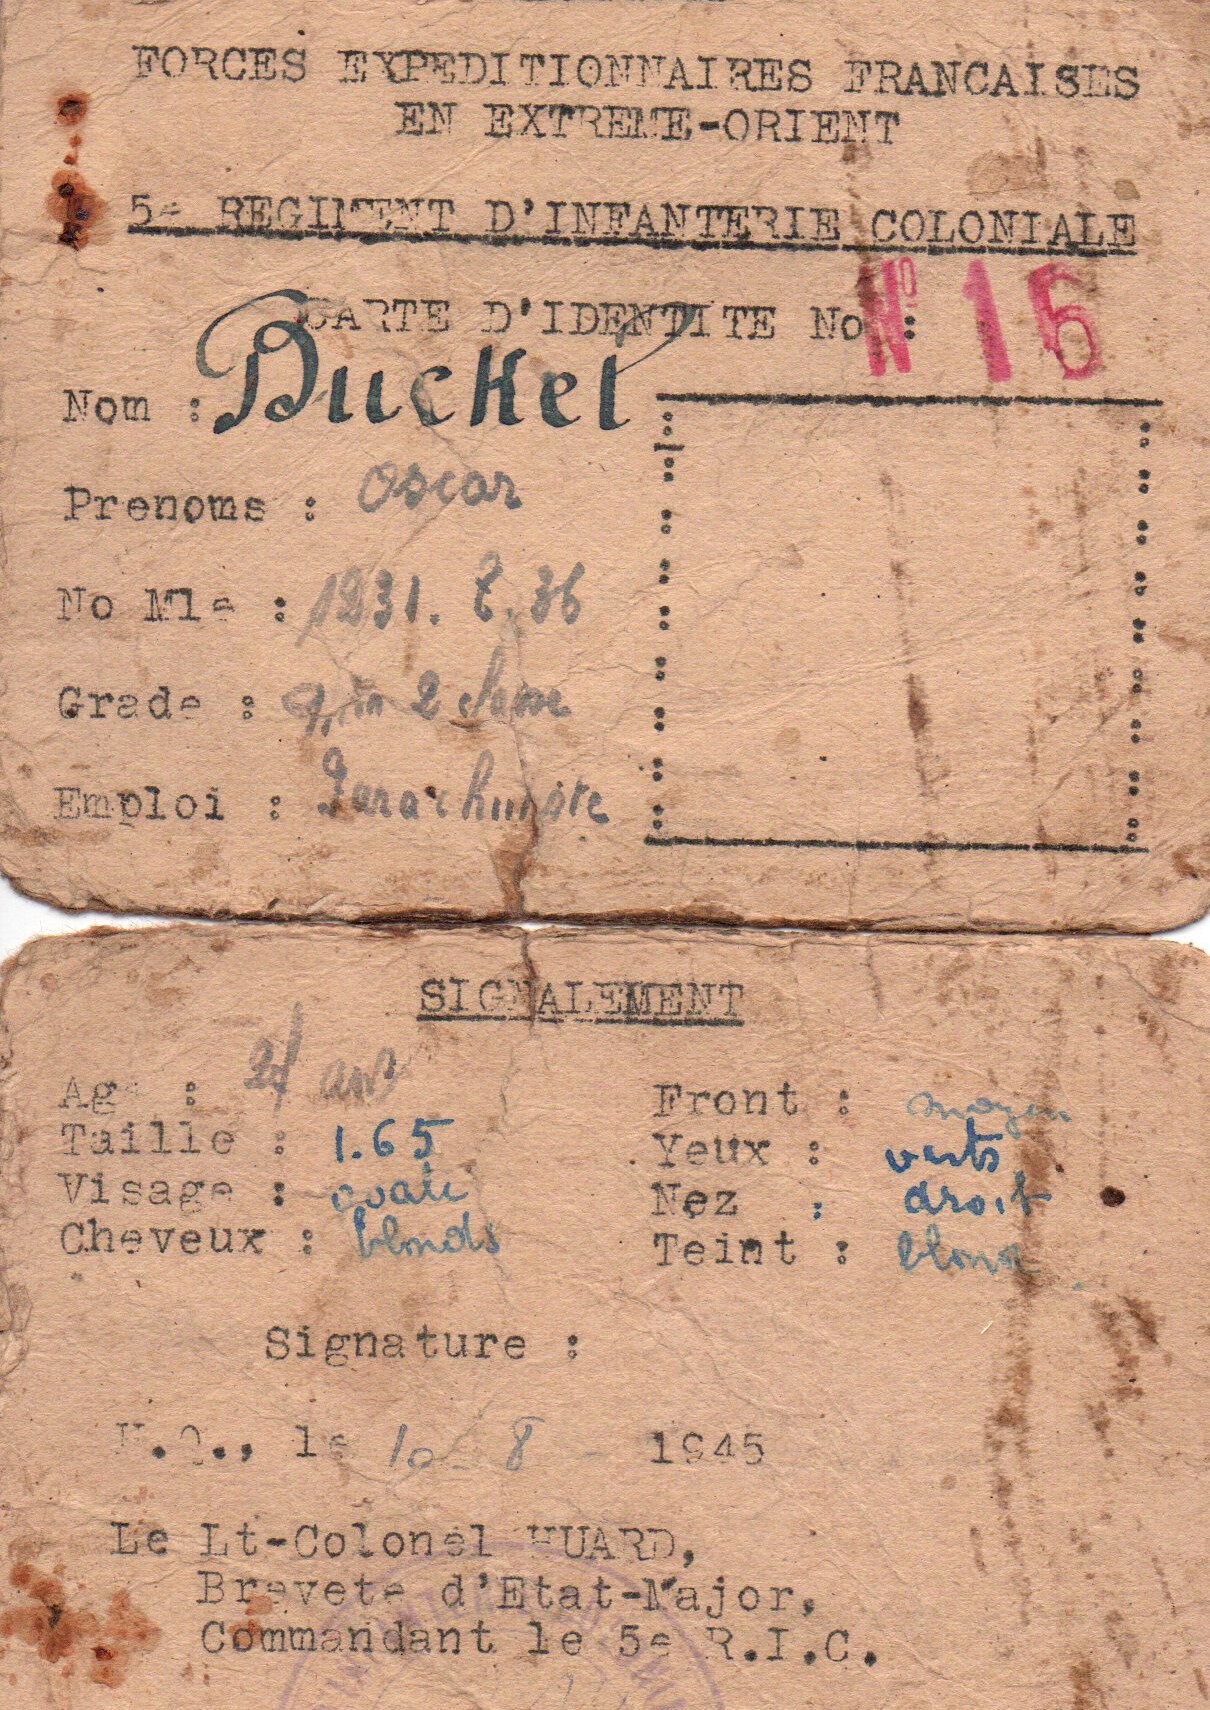 FORCES EXPEDITIONNAIRES FRANCAISES
EN EXTREME-ORIENT
5e REGIMENT D'INFANTERIE COLONIALE
CARTE D'IDENTITE No : Nº 16
Nom : Ducket
Prenoms : Oscar
No Mle : 1231. 36
Grade : 2 classe
Emploi : Parachutiste
SIGNALEMENT
Age : ans
Taille : 1.65
Visage : ovale
Cheveux : blonds
Front : moyen
Yeux : verts
Nez : droit
Teint : blond
Signature :
H.Q., le 10 - 8 - 1945
Le Lt-Colonel HUARD,
Brevete d'Etat-Major,
Commandant le 5e R.I.C.